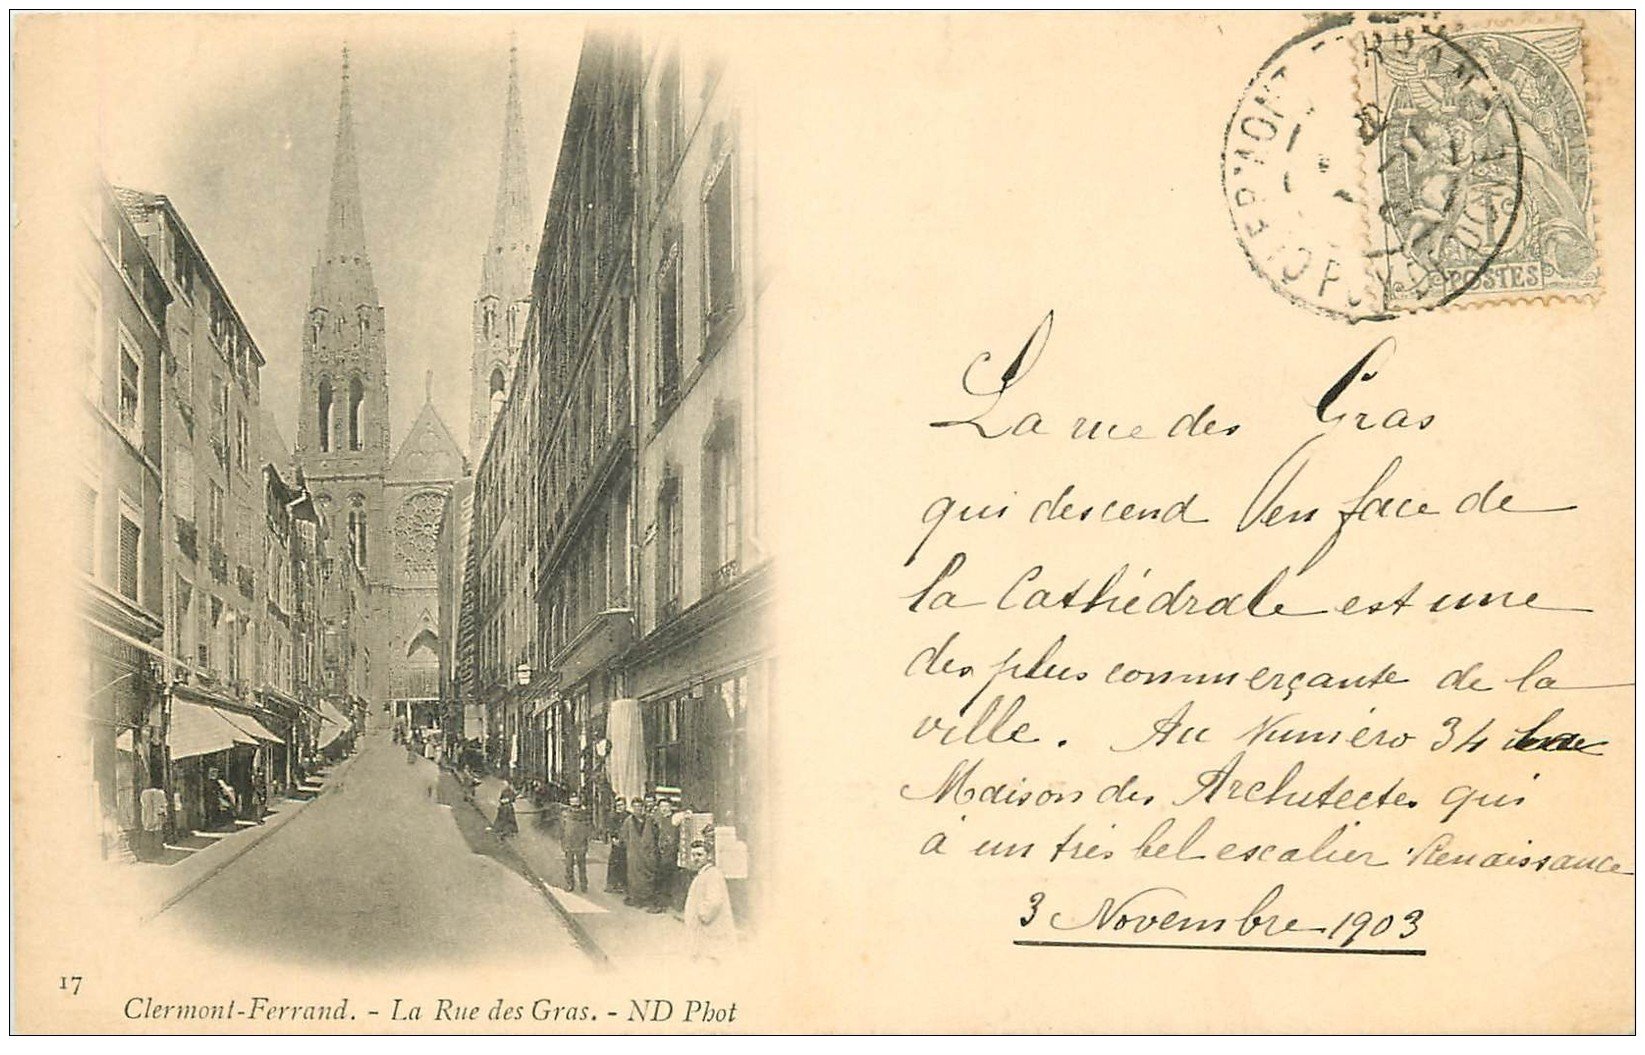 CLERMONT-FERRAND
PUY-DE-DOME
POSTES
La rue des Gras
qui descend en face de
la Cathédrale est une
des plus commerçante de la
ville. Au Numéro 34
Maison des Architectes qui
à un très bel escalier Renaissance
3 Novembre 1903
17
Clermont-Ferrand. - La Rue des Gras. - ND Phot